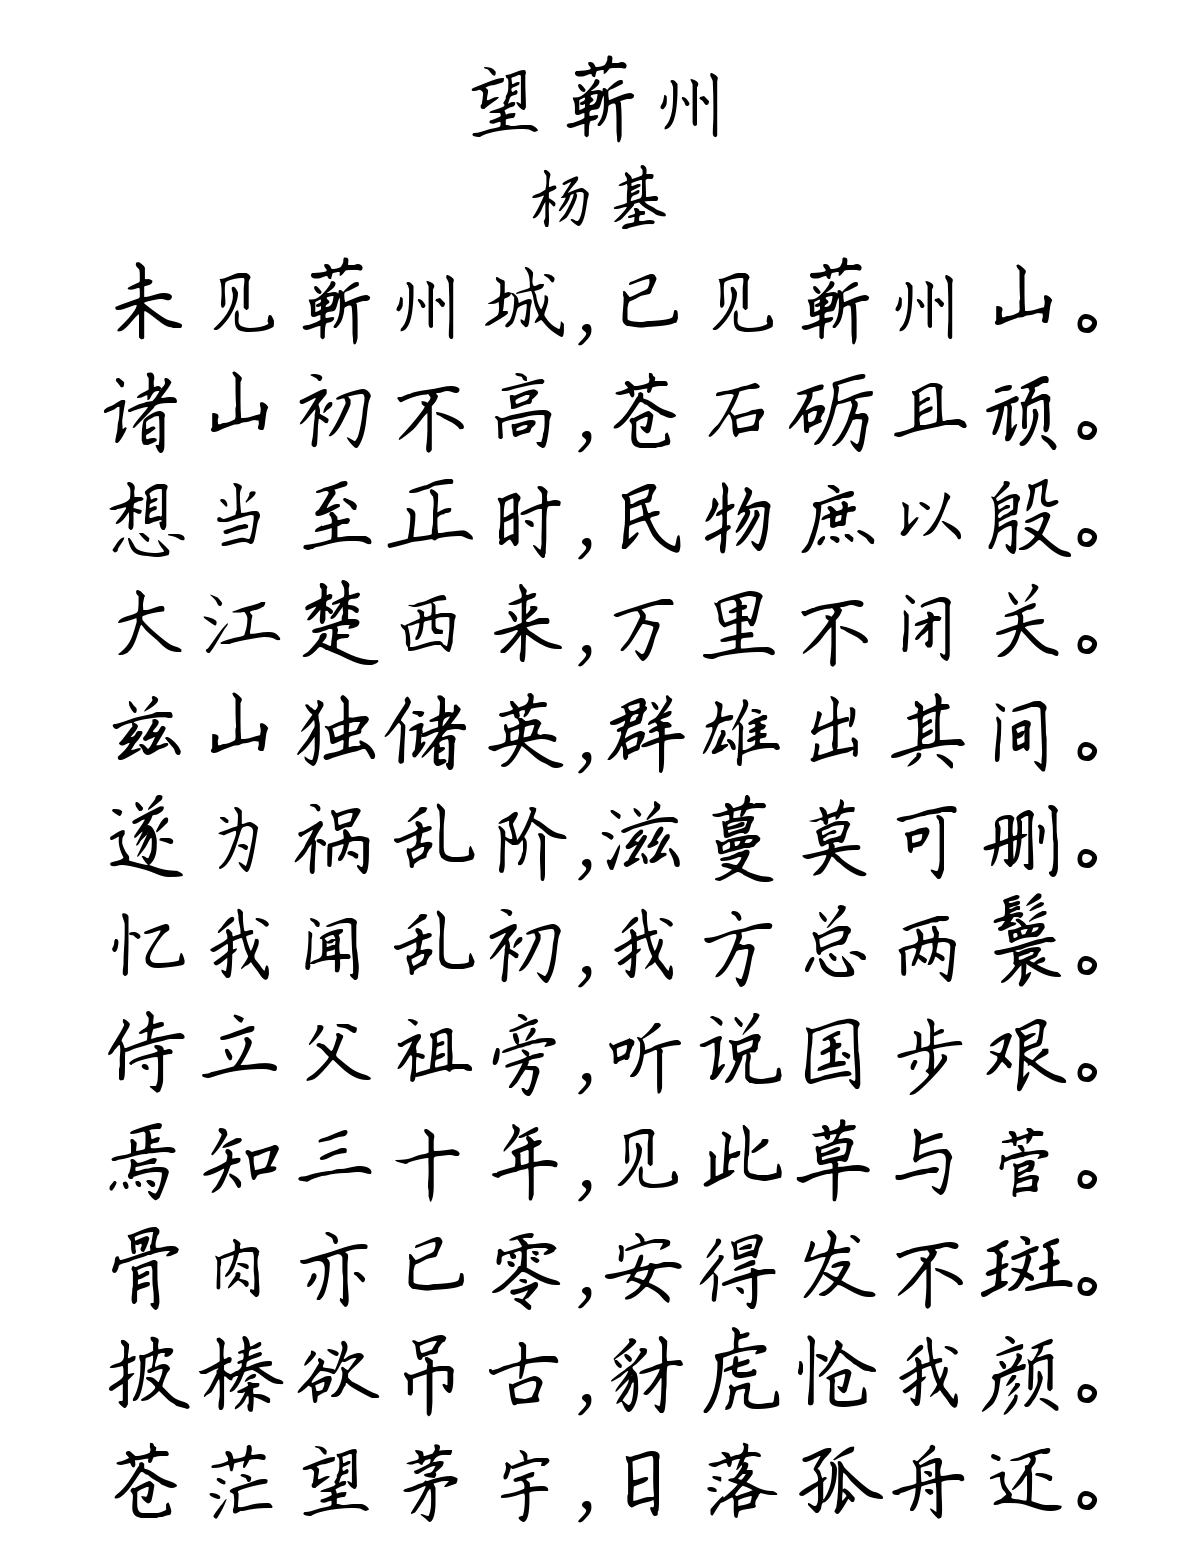 望蕲州
杨基
未见蕲州城,已见蕲州山。
诸山初不高,苍石砺且顽。
想当至正时,民物庶以殷。
大江楚西来,万里不闭关。
兹山独储英,群雄出其间。
遂为祸乱阶,滋蔓莫可删。
忆我闻乱初,我方总两鬟。
侍立父祖旁,听说国步艰。
焉知三十年,见此草与菅。
骨肉亦已零,安得发不斑。
披榛欲吊古,豺虎怆我颜。
苍茫望茅宇,日落孤舟还。